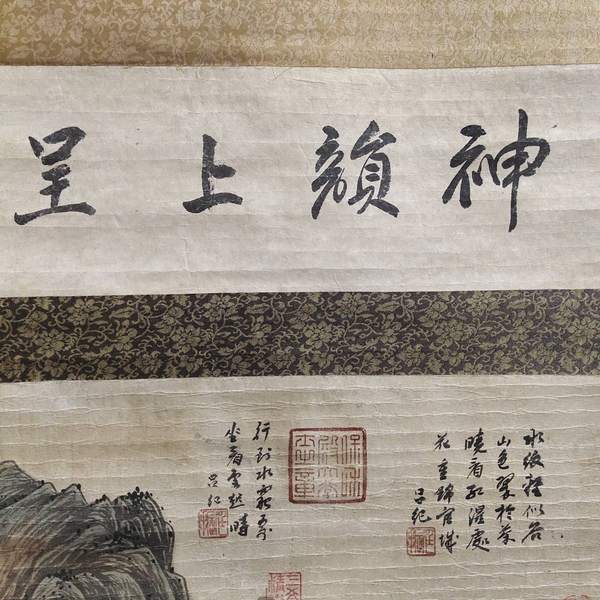 神韻上呈
水紋輕似谷
山色翠於
曉看紅濕處
花重錦官城
呂紀
行到水窮處
坐看雲起時
呂紀